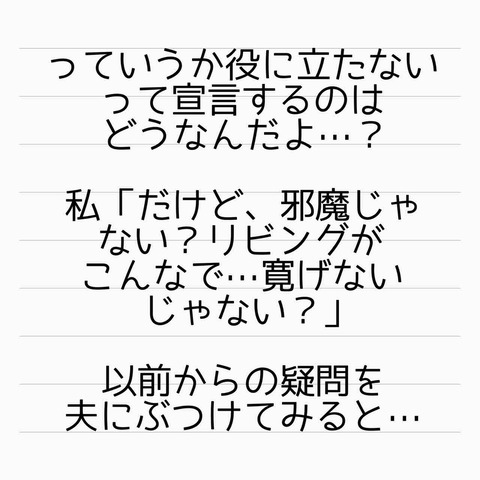 っていうか役に立たない
って宣言するのは
どうなんだよ…？
私「だけど、邪魔じゃ
ない？リビングが
こんなで…寛げない
じゃない？」
以前からの疑問を
夫にぶつけてみると…